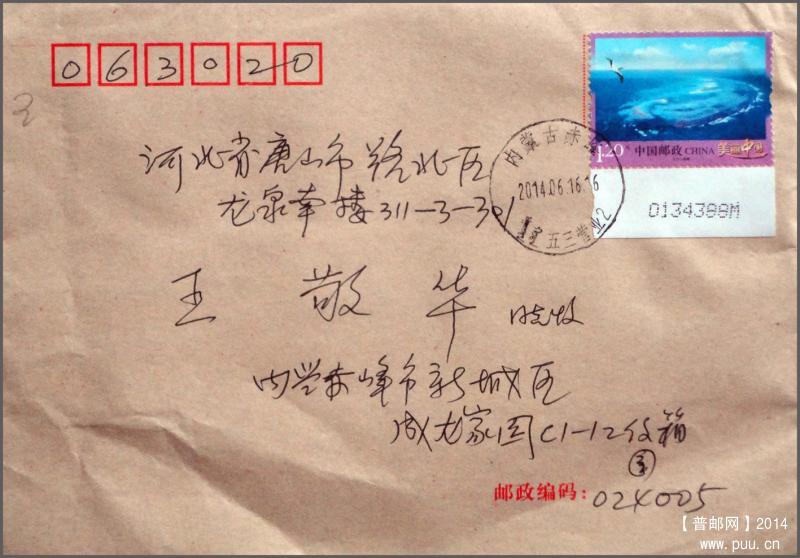 063020
1.20元 中国邮政 CHINA 美丽中国
0134388M
内蒙古赤
2014.06.16.16
五三营业2
河北省唐山市路北区
龙泉南楼311-3-301
王敬华 收
内蒙赤峰市新城区
成龙家园C1-12信箱
邮政编码: 024005
【普邮网】2014
www.puu.cn